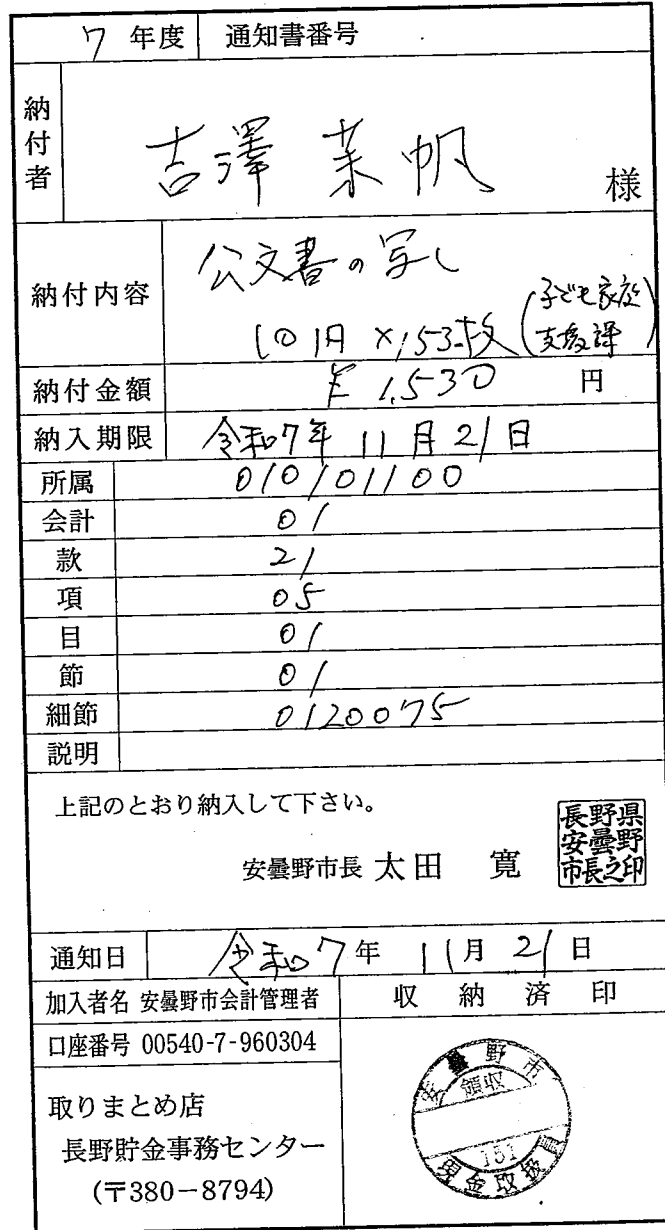 7 年度 通知書番号
納付者 吉澤 茉帆 様
納付内容 公文書の写し
10円 ×153枚 (子ども家庭支援課)
納付金額 ¥ 1,530 円
納入期限 令和7年 11月21日
所属 010101100
会計 01
款 21
項 05
目 01
節 01
細節 0120075
説明
上記のとおり納入して下さい。
安曇野市長 太田 寛
長野県安曇野市長之印
通知日 令和7年 11月21日
加入者名 安曇野市会計管理者
収納済印
口座番号 00540-7-960304
取りまとめ店
長野貯金事務センター
(〒380-8794)
安曇野市
領収
151
現金取扱員